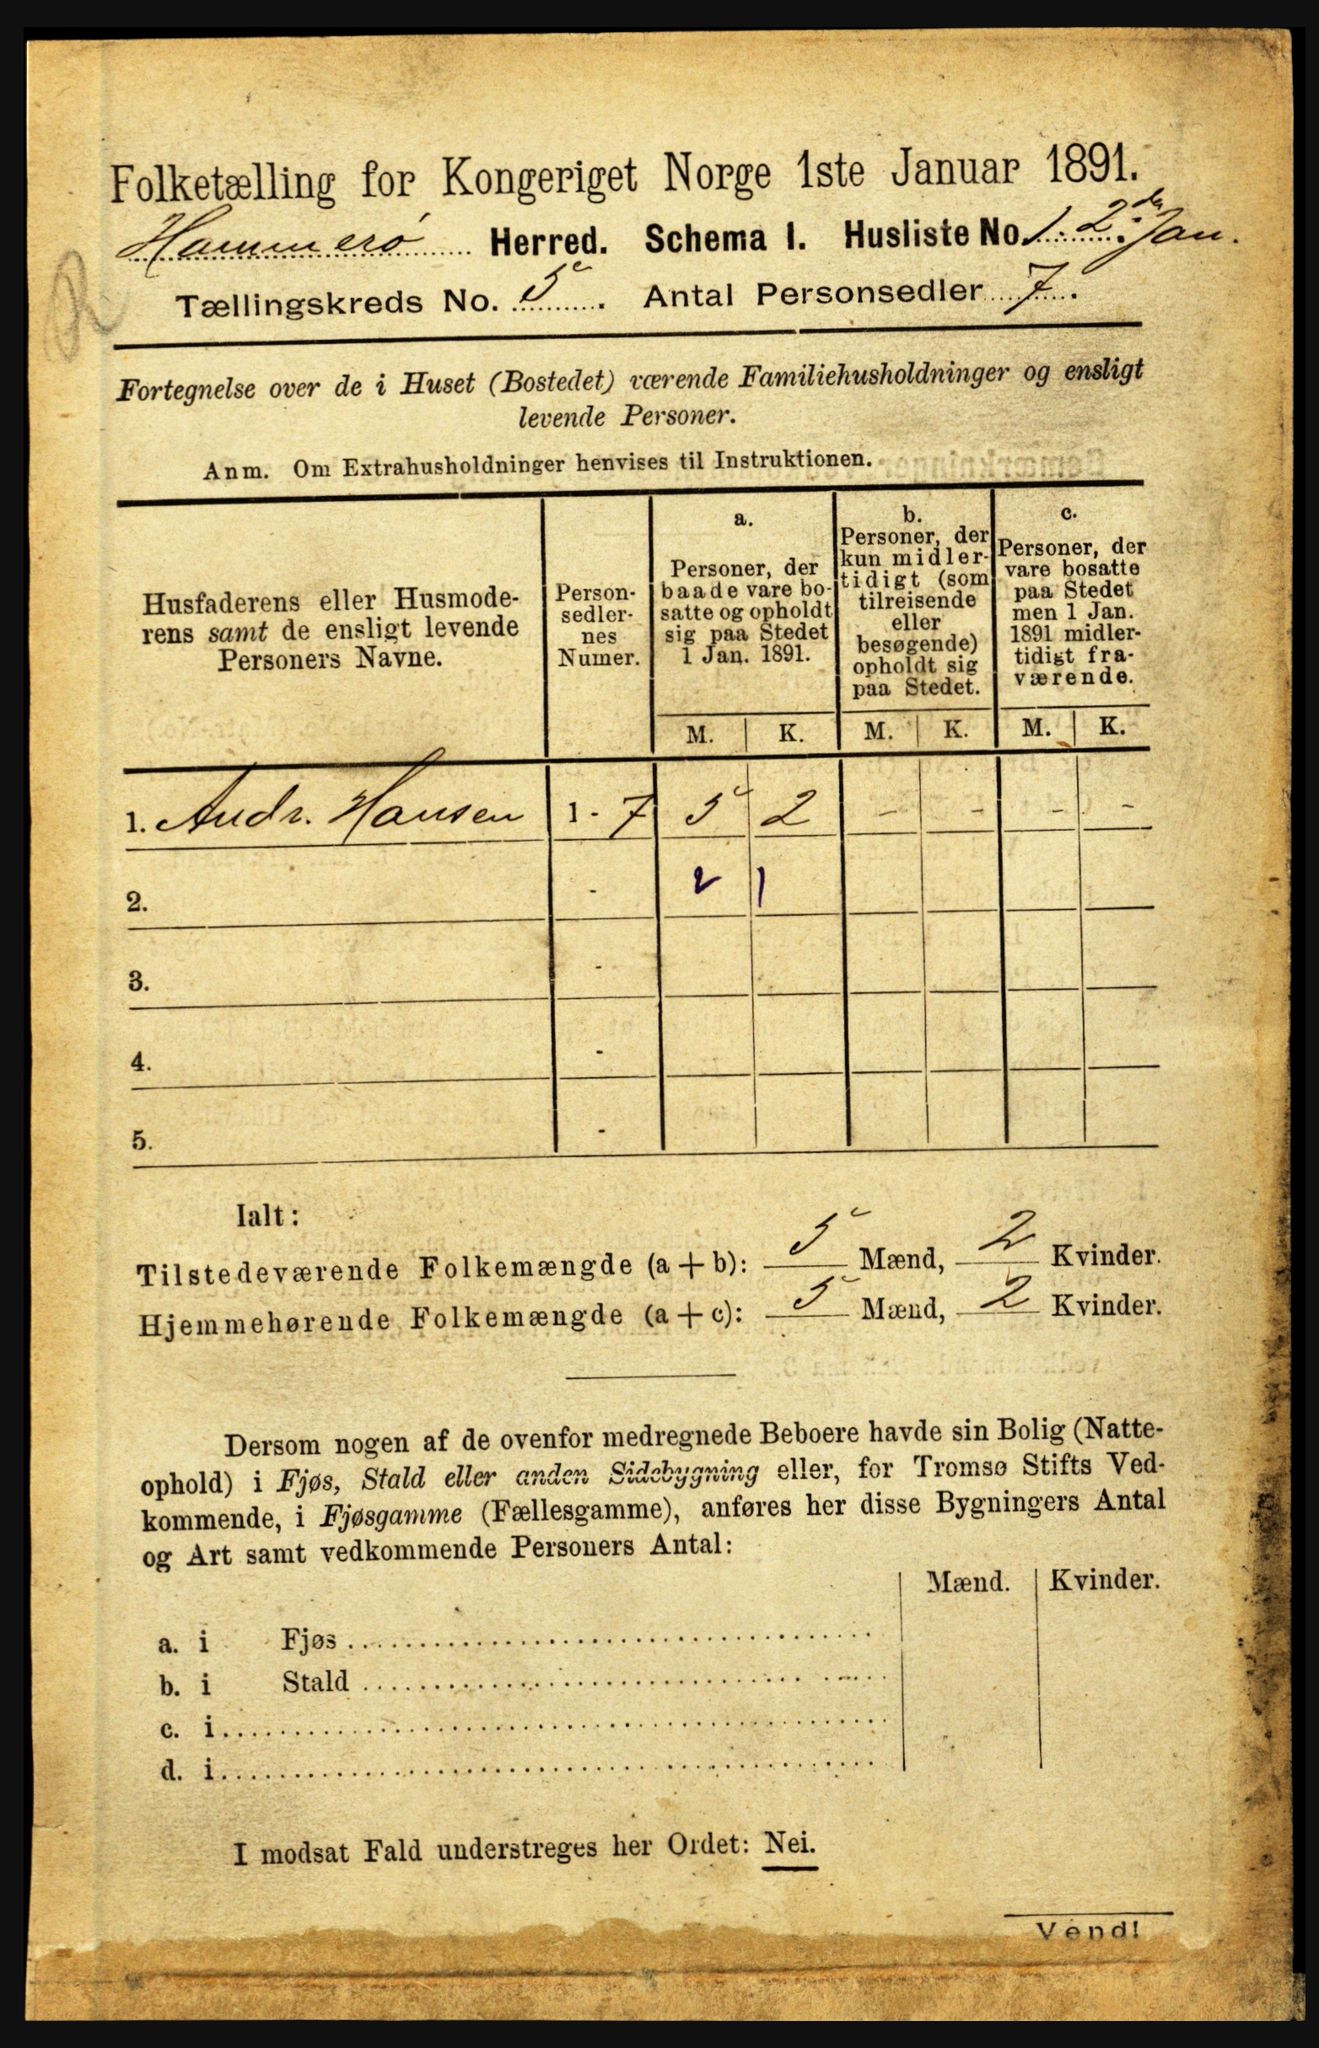 Folketælling for Kongeriget Norge 1ste Januar 1891.
Hammerø Herred. Schema I. Husliste No. 1. 2den Jan.
Tællingskreds No. 5. Antal Personsedler 7.
R
Fortegnelse over de i Huset (Bostedet) værende Familiehusholdninger og ensligt
levende Personer.
Anm. Om Extrahusholdninger henvises til Instruktionen.
Husfaderens eller Husmode-
rens samt de ensligt levende
Personers Navne.
Person-
sedler-
nes
Numer.
a.
Personer, der
baade vare bo-
satte og opholdt
sig paa Stedet
1 Jan. 1891.
b.
Personer, der
kun midler-
tidigt (som
tilreisende
eller
besøgende)
opholdt sig
paa Stedet.
c.
Personer, der
vare bosatte
paa Stedet
men 1 Jan.
1891 midler-
tidigt fra-
værende.
M. K. M. K. M. K.
1. Andr. Hansen 1 - 7 5 2 - - - -
2. - 2 1
3. -
4. -
5. -
Ialt:
Tilstedeværende Folkemængde (a + b): 5 Mænd, 2 Kvinder.
Hjemmehørende Folkemængde (a + c): 5 Mænd, 2 Kvinder.
Dersom nogen af de ovenfor medregnede Beboere havde sin Bolig (Natte-
ophold) i Fjøs, Stald eller anden Sidebygning eller, for Tromsø Stifts Ved-
kommende, i Fjøsgamme (Fællesgamme), anføres her disse Bygningers Antal
og Art samt vedkommende Personers Antal:
Mænd. Kvinder.
a. i Fjøs
b. i Stald
c. i
d. i
I modsat Fald understreges her Ordet: Nei.
Vend!